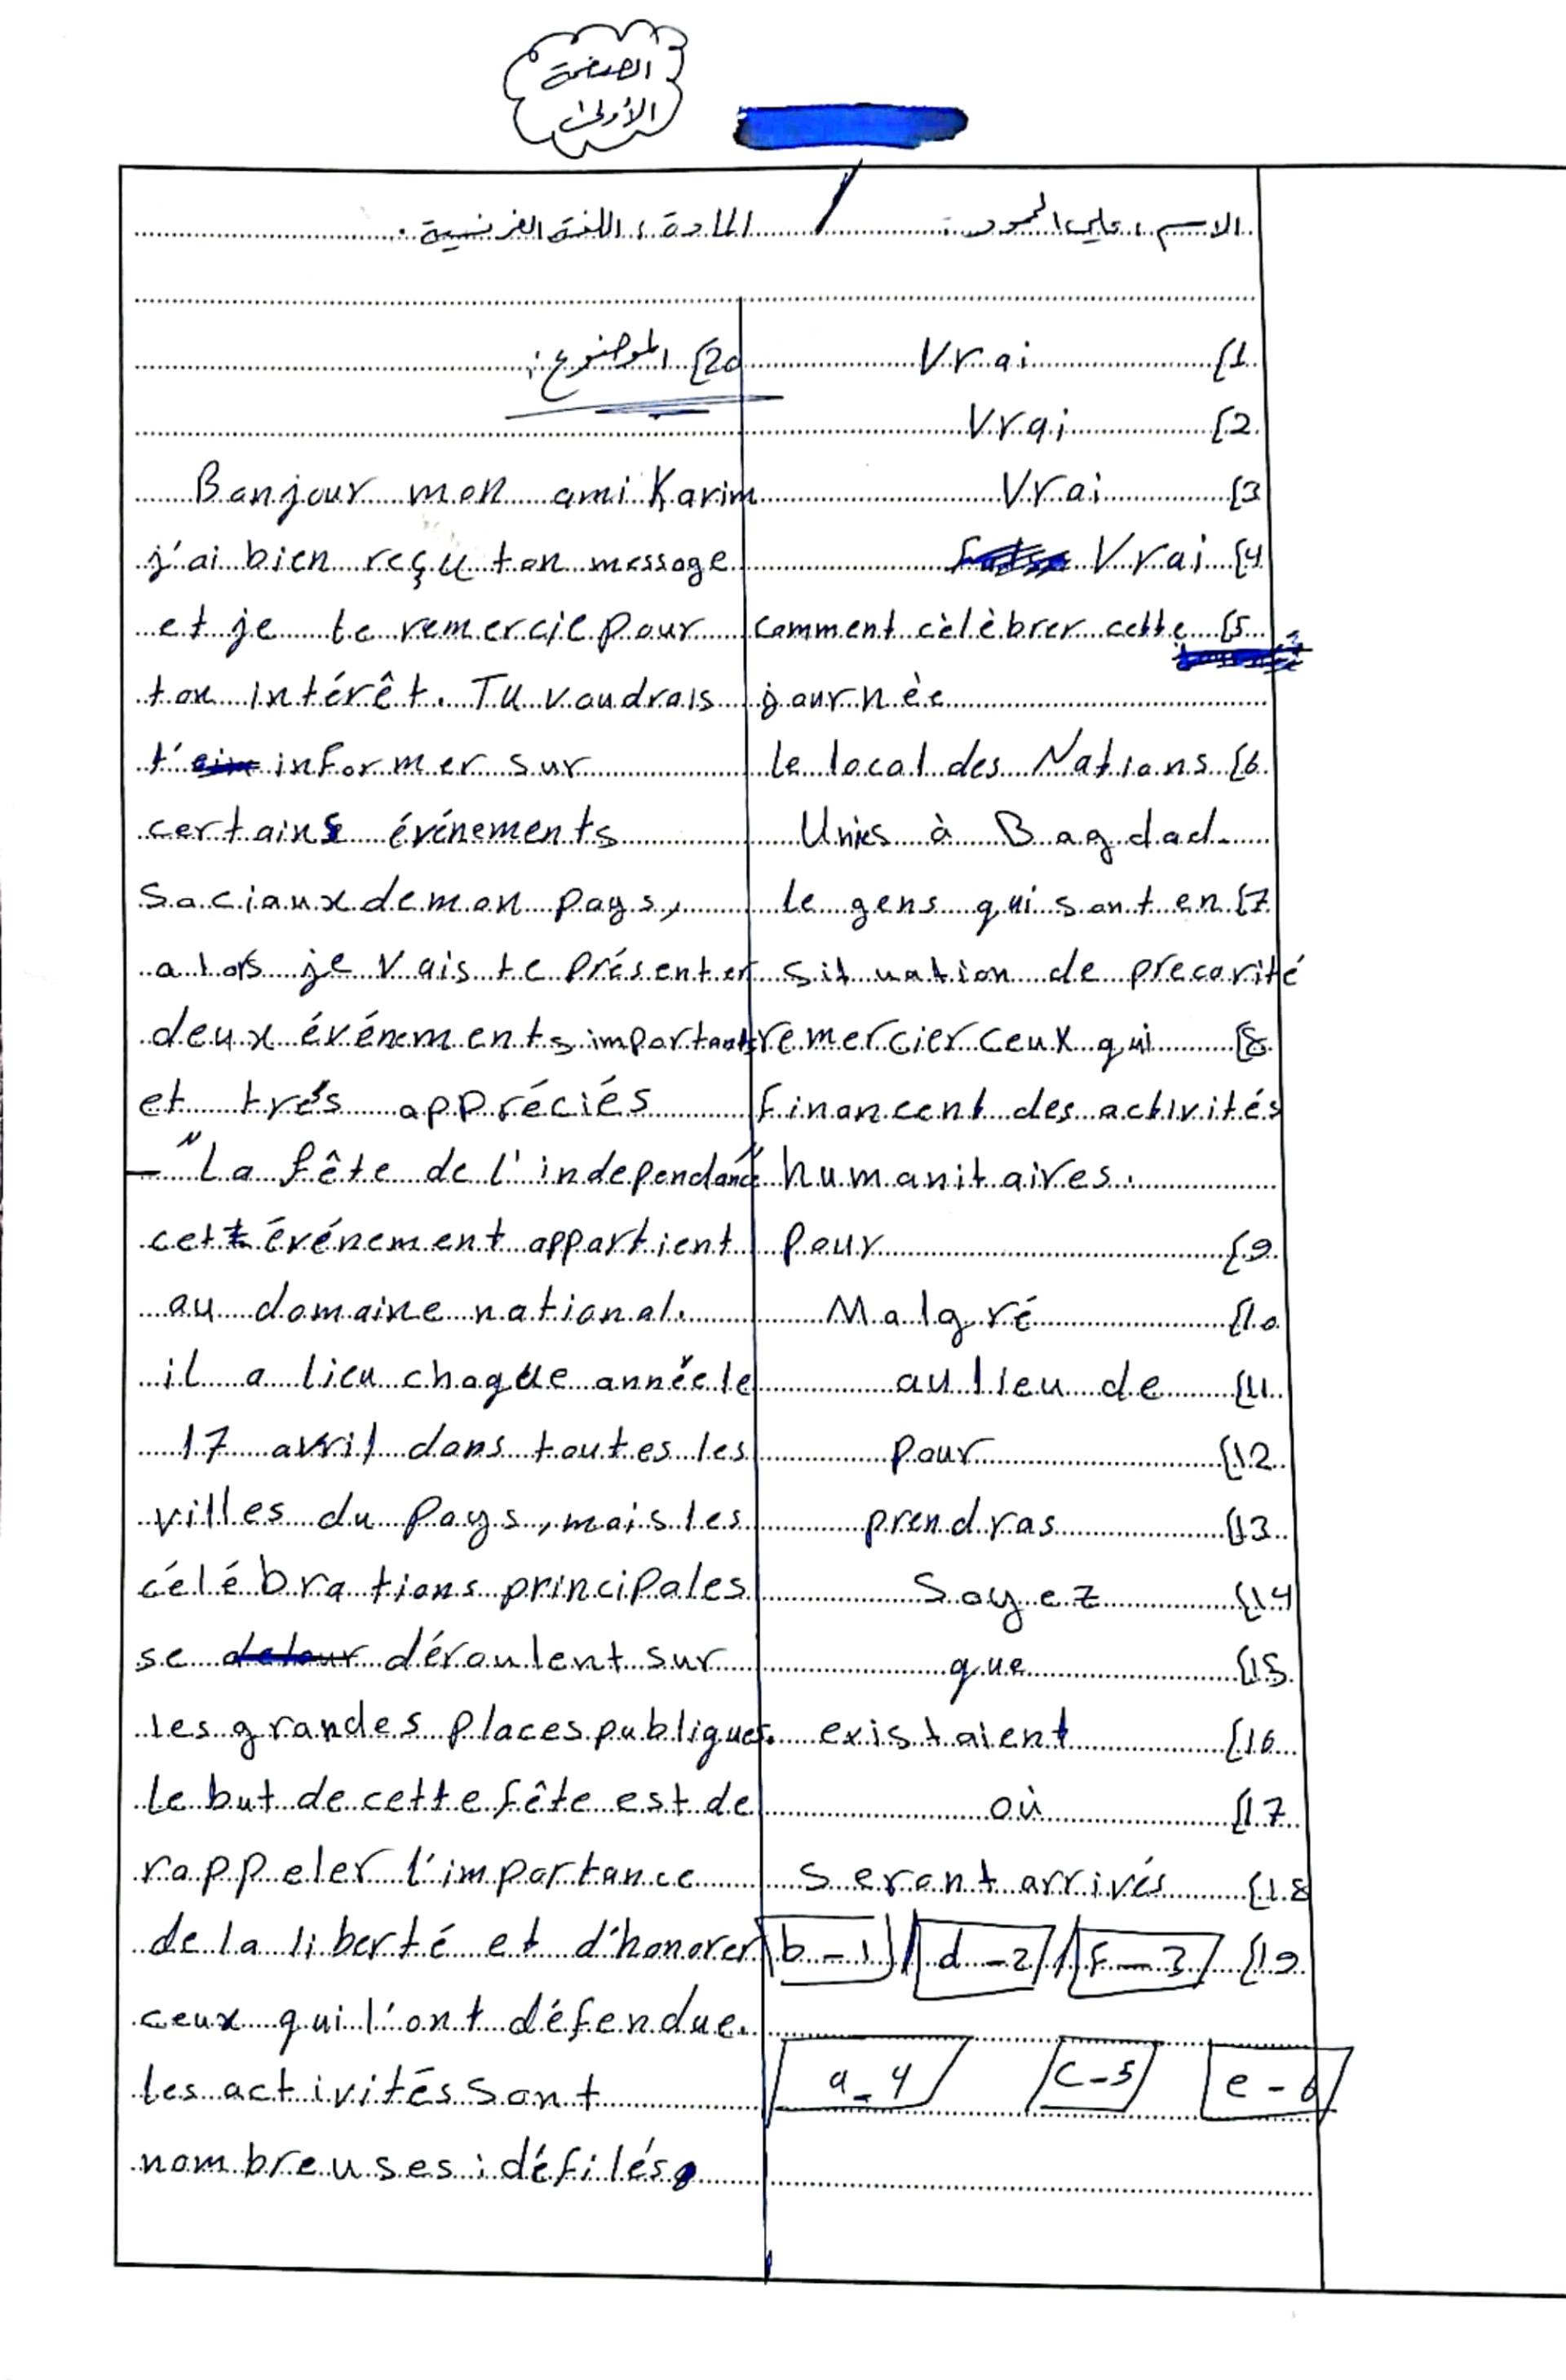 الصفحة
الأولى
الاسم: علي المحمود
المادة: اللغة الفرنسية.
1} Vrai
2} Vrai
3} Vrai
4} Vrai
5} comment cèlèbrer cette
journèe
6} le local des Nations
Unies à Bagdad.
7} le gens qui sont en
situation de precarité
8} remercier ceux qui
financent des activités
humanitaires.
9} pour
10} Malgré
11} au lieu de
12} pour
13} prendras
14} Soyez
15} que
16} existaient
17} où
18} Seront arrivés
19} b-1 / d-2 / f-3
a-4 c-5 e-6
20} الموضوع:
Bonjour mon ami Karim
j'ai bien reçu ton message
et je te remercie pour
ton intérêt. Tu voudrais
t' informer sur
certains événements
Sociaux de mon pays,
alors je vais te présenter
deux événements importants
et trés appréciés
- "La fête de l'independance"
cet événement appartient
au domaine national.
il a lieu chaque année le
17 avril dans toutes les
villes du pays, mais les
célébrations principales
se déroulent sur
les grandes places publiques.
le but de cette fête est de
rappeler l'importance
de la liberté et d'honorer
ceux qui l'ont défendue.
les activités sont
nombreuses: défilés,